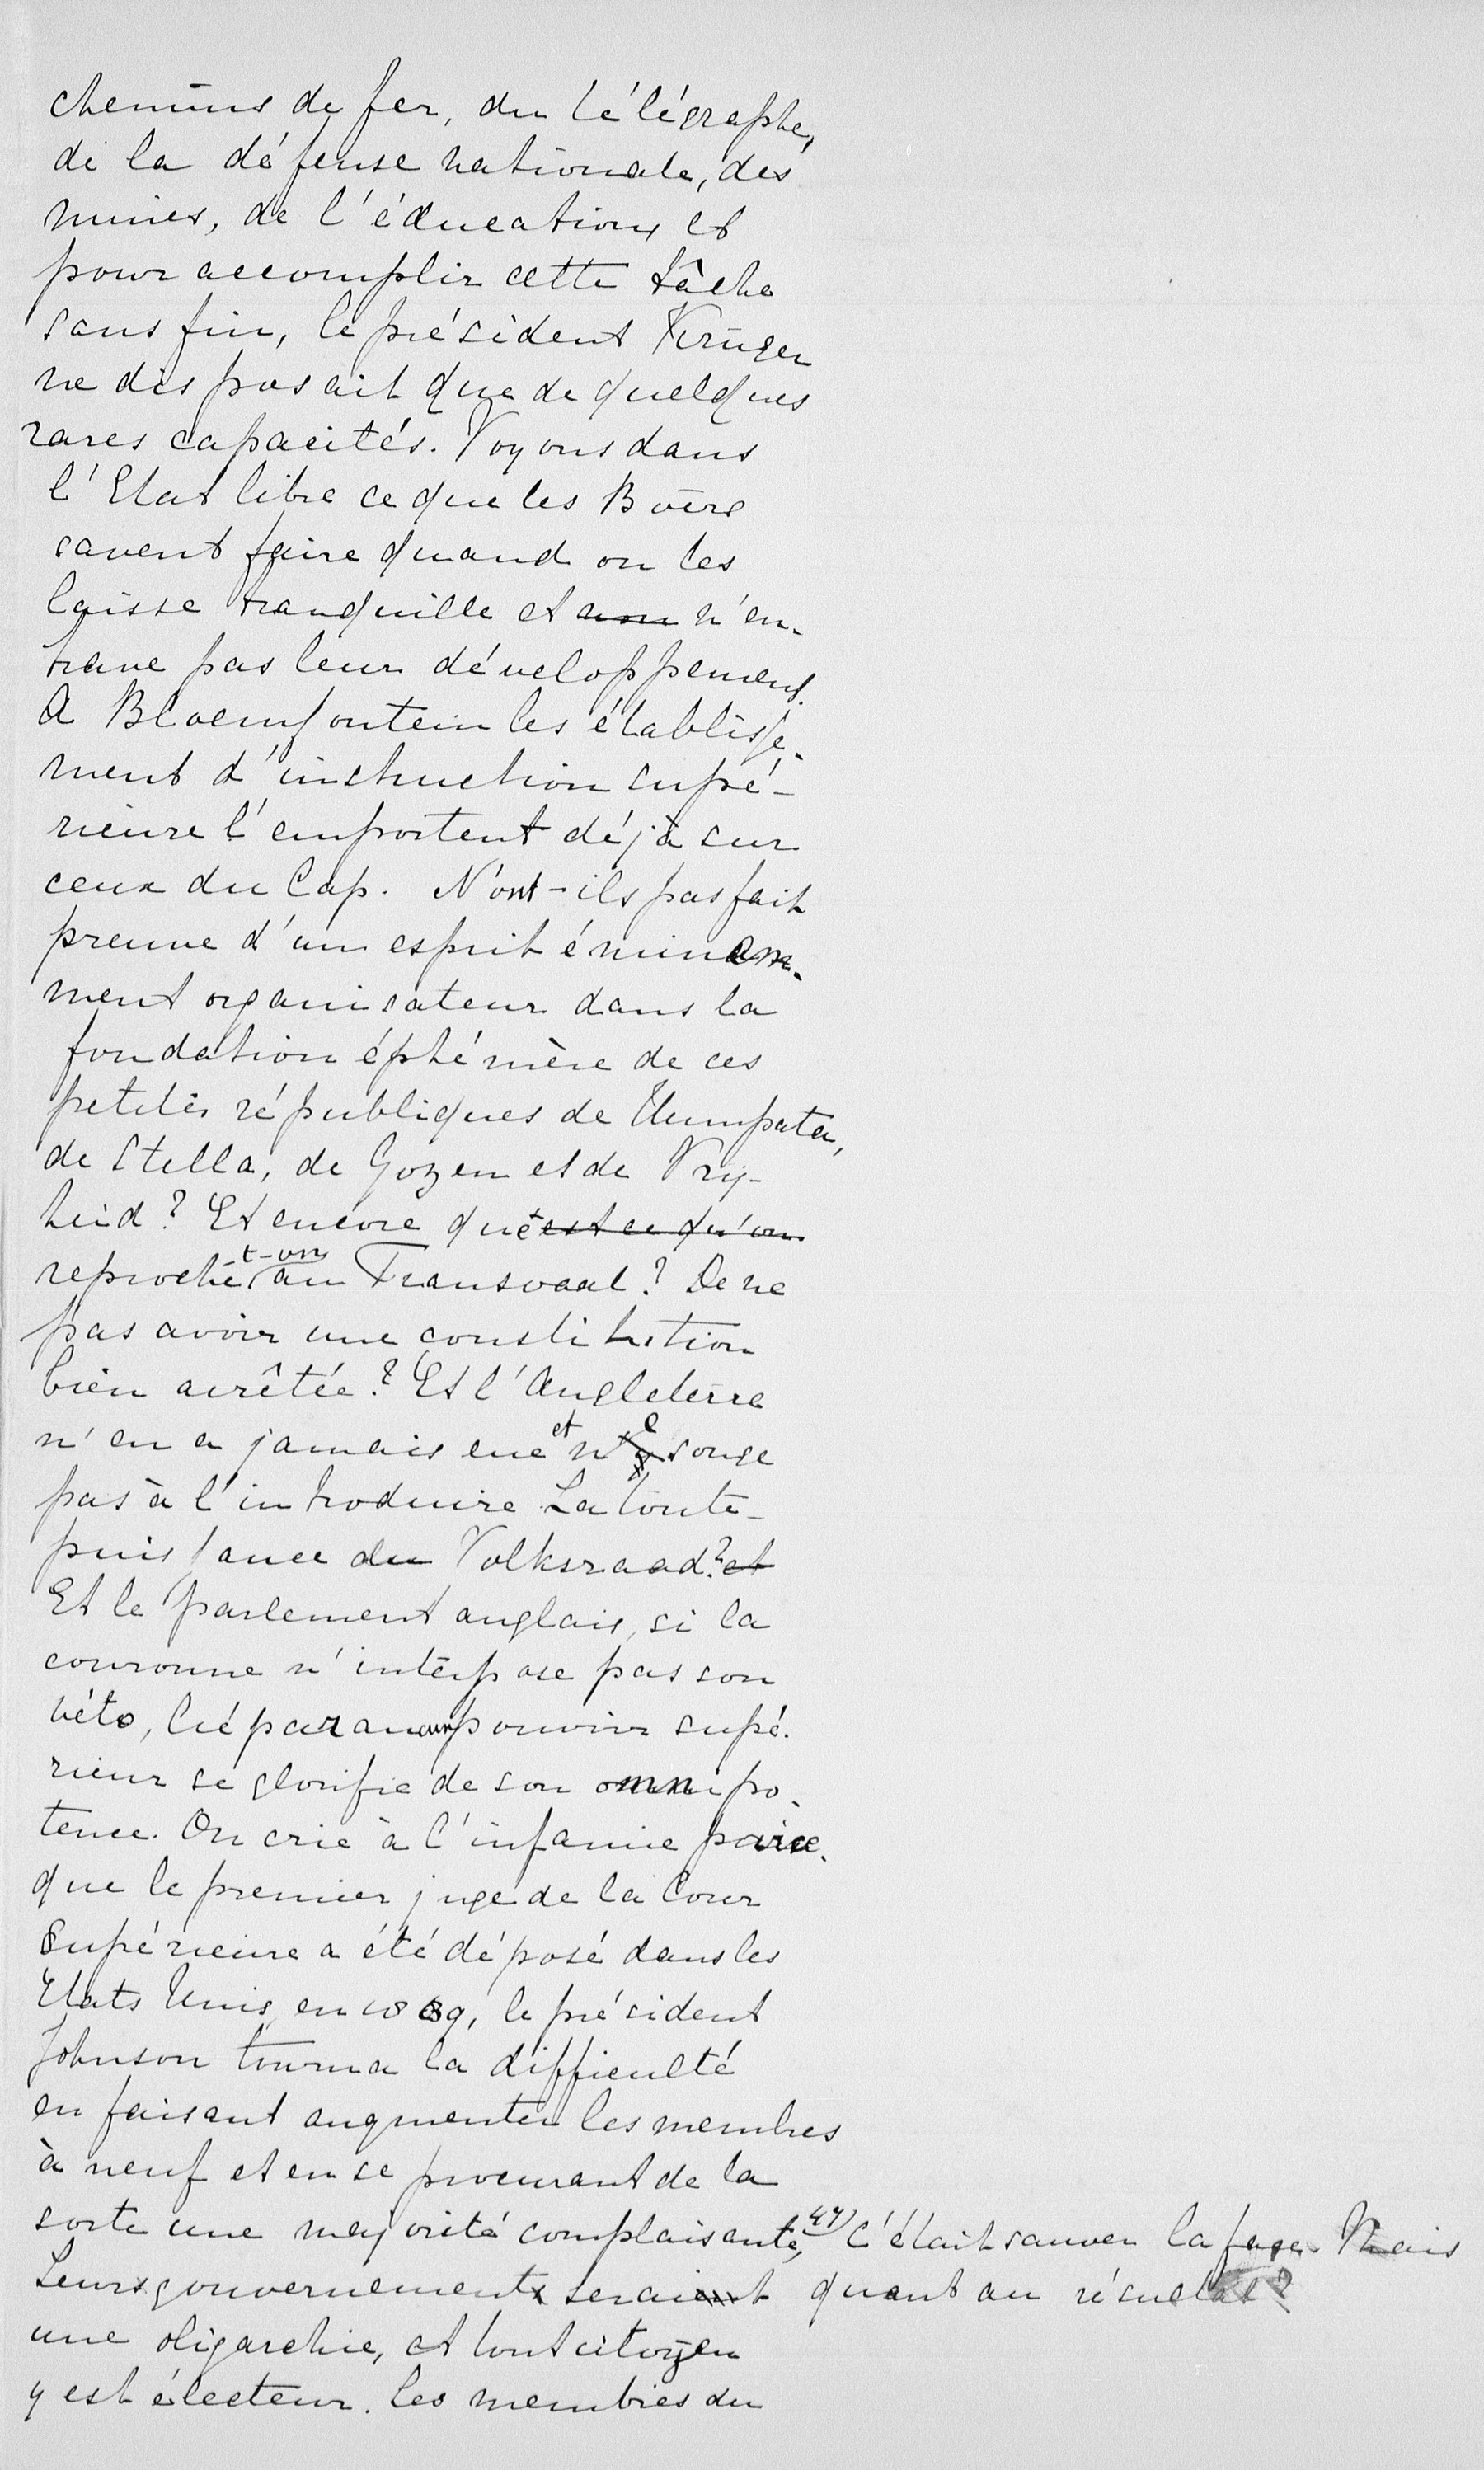 chemins de fer, du télégraphe,
de la défense nationale, des
mines, de l'éducation, et
pour accomplir cette tâche
sans fin, le président Krüger
ne disposait que de quelques
rares capacités. Voyons dans
l'Etat libre ce que les Boërs
savent faire quand on les
laisse tranquille et n'en-
trave pas leur développement.
A Bloemfontein les établisse-
ment d'instruction supé-
rieure l'emportent déjà sur
ceux du Cap. N'ont-ils pas fait
preuve d'un esprit éminem-
ment organisateur dans la
fondation éphémère de ces
petites républiques de Umpata,
de Stella, de Gozen et de Vry-
heid? Et encore que est ce qu'on
reproche t-on au Transvaal? De ne
pas avoir une constitution
bien arrêtée? Et l'Angleterre
n'en a jamais eue et ne songe
pas à l'introduire. La toute-
puissance du Volksraad? et
Et le parlement anglais, si la
couronne n'interpose pas son
véto, lié par aucun pouvoir supé-
rieur se glorifie de son omnipo-
tence. On crie à l'infamie parce-
que le premier juge de la Cour
Supérieure a été déposé dans les
Etats Unis, en 1869, le président
Johnson tourna la difficulté
en faisant augmenter les membres
à neuf et en se procurant de la
sorte une majorité complaisante, 47) C'était sauver la face. Mais
Leurs gouvernement serait quant au résultat?
une oligarchie, et tout citoyen
y est électeur. Les membres du